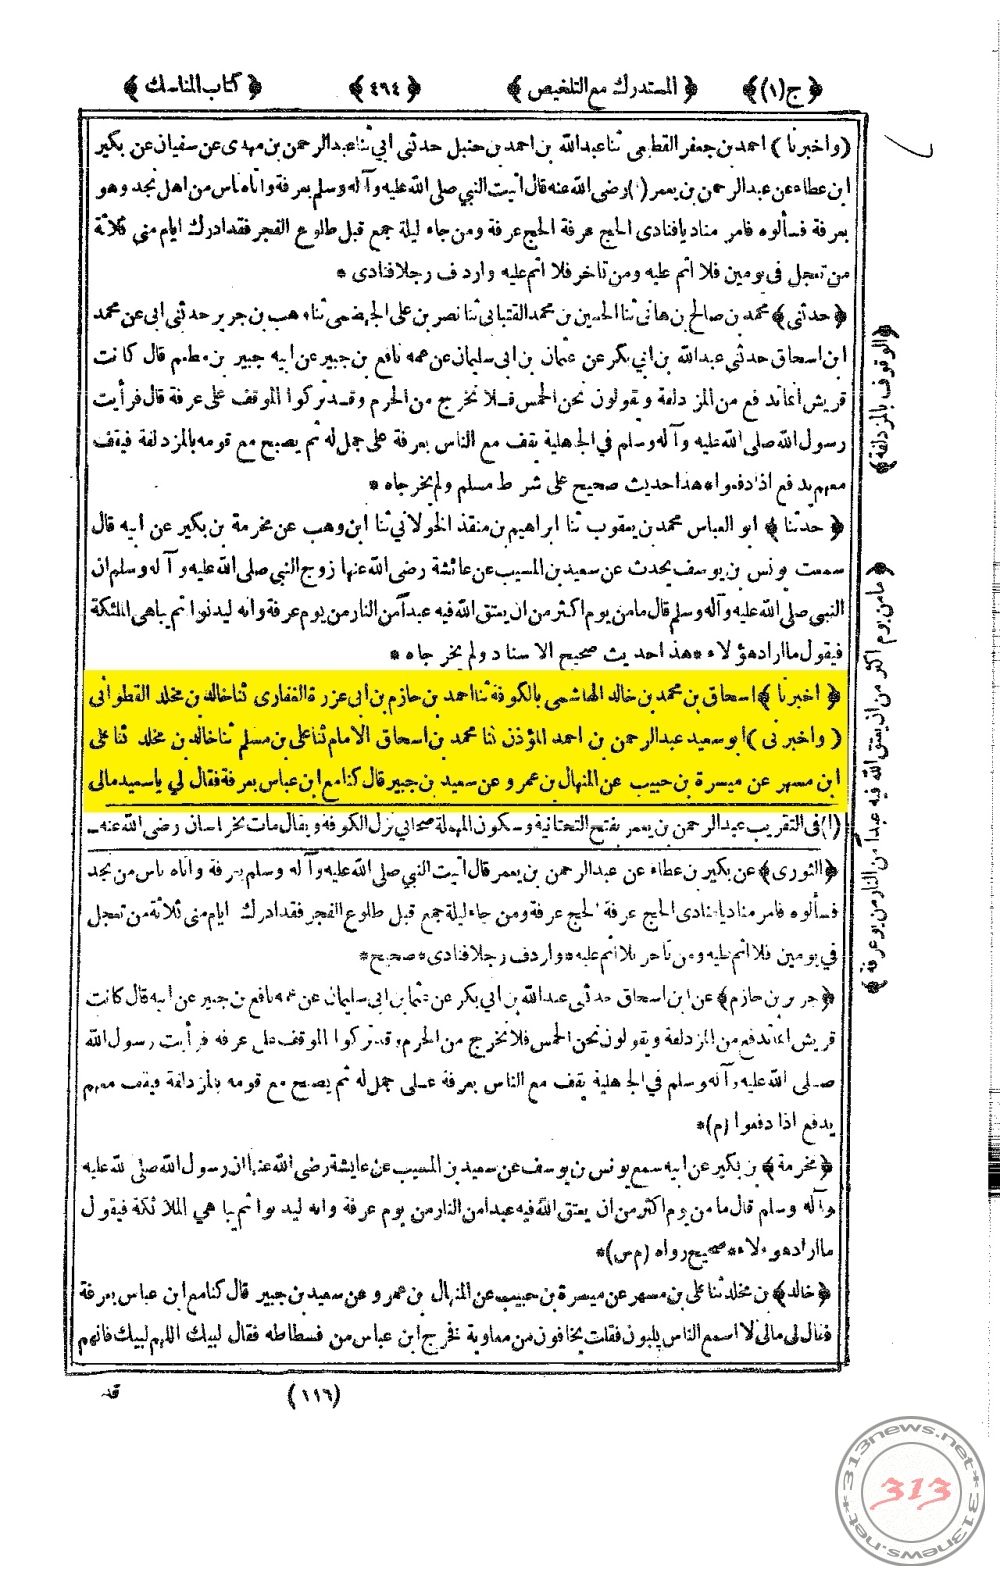 ﴿ ج (١) ﴾ ﴿ المستدرك مع التلخيص ﴾ ﴿ ٤٦٤ ﴾ ﴿ كتاب المناسك ﴾
( واخبرنا ) احمد بن جعفر القطيعى ثنا عبد الله بن احمد بن حنبل حدثنى ابى ثنا عبد الرحمن بن مهدى عن سفيان عن بكير
ابن عطاء عن عبد الرحمن بن يعمر (١) رضى الله عنه قال اتيت النبي صلى الله عليه وآله وسلم بعرفة واتاه ناس من اهل نجد وهو
بعرفة فسألوه فامر مناديا فنادى الحج عرفة الحج عرفة ومن جاء ليلة جمع قبل طلوع الفجر فقد ادرك ايام منى ثلاثة
من تعجل فى يومين فلا اثم عليه ومن تاخر فلا اثم عليه واردف رجلا فنادى *
﴿ حدثنى ﴾ محمد بن صالح بن هانى ثنا الحسين بن محمد القتبانى ثنا نصر بن على الجهضمى ثنا وهب بن جرير حدثنى ابى عن محمد
ابن اسحاق حدثنى عبد الله بن ابي بكر عن عثمان بن ابى سليمان عن عمه نافع بن جبير عن ابيه جبير بن مطعم قال كانت
قريش انما تدفع من المزدلفة ويقولون نحن الحمس فلا نخرج من الحرم وقد تركوا الموقف على عرفة قال فرأيت
رسول الله صلى الله عليه وآله وسلم في الجاهلية يقف مع الناس بعرفة على جمل له ثم يصبح مع قومه بالمزدلفة فيقف
معهم يدفع اذا دفعوا * هذا حديث صحيح على شرط مسلم ولم يخرجاه *
﴿ حدثنا ﴾ ابو العباس محمد بن يعقوب ثنا ابراهيم بن منقذ الخولاني ثنا ابن وهب عن مخرمة بن بكير عن ابيه قال
سمعت يونس بن يوسف يحدث عن سعيد بن المسيب عن عائشة رضى الله عنها زوج النبي صلى الله عليه وآله وسلم ان
النبى صلى الله عليه وآله وسلم قال ما من يوم اكثر من ان يعتق الله فيه عبداً من النار من يوم عرفة وانه ليدنوا ثم يباهى الملئكة
فيقول ما اراد هؤلاء * هذا حديث صحيح الاسناد ولم يخرجاه *
﴿ اخبرنا ﴾ اسحاق بن محمد بن خالد الهاشمى بالكوفة ثنا احمد بن حازم بن ابى غرزة الغفارى ثنا خالد بن مخلد القطوانى
( واخبرنى ) ابو سعيد عبد الرحمن بن احمد المؤذن ثنا محمد بن اسحاق الامام ثنا على بن مسلم ثنا خالد بن مخلد ثنا على
ابن مسهر عن ميسرة بن حبيب عن المنهال بن عمرو عن سعيد بن جبير قال كنا مع ابن عباس بعرفة فقال لي يا سعيد مالى
(١) فى التقريب عبد الرحمن بن يعمر بفتح التحتانية وسكون المهملة صحابي نزل الكوفة ويقال مات بخراسان رضى الله عنه ــ
﴿ الثورى ﴾ عن بكير بن عطاء عن عبد الرحمن بن يعمر قال اتيت النبي صلى الله عليه وآله وسلم بعرفة واتاه ناس من نجد
فسألوه فامر مناديا فنادى الحج عرفة الحج عرفة ومن جاء ليلة جمع قبل طلوع الفجر فقد ادرك ايام منى ثلاثة من تعجل
في يومين فلا اثم عليه ومن تاخر فلا اثم عليه * واردف رجلا فنادى * صحيح *
﴿ جرير بن حازم ﴾ عن ابن اسحاق حدثنى عبد الله بن ابي بكر عن عثمان بن ابى سليمان عن عمه نافع بن جبير عن ابيه قال كانت
قريش انما تدفع من المزدلفة ويقولون نحن الحمس فلا نخرج من الحرم وقد تركوا الموقف على عرفه فرأيت رسول الله
صلى الله عليه وآله وسلم في الجاهلية يقف مع الناس بعرفة على جمل له ثم يصبح مع قومه بالمزدلفة فيقف معهم
يدفع اذا دفعوا (م) *
﴿ مخرمة ﴾ بن بكير عن ابيه سمع يونس بن يوسف عن سعيد بن المسيب عن عايشة رضى الله عنها ان رسول الله صلى الله عليه
وآله وسلم قال ما من يوم اكثر من ان يعتق الله فيه عبدا من النار من يوم عرفة وانه ليدنوا ثم يباهي الملائكة فيقول
ما اراد هؤلاء * صحيح رواه (م س) *
﴿ خالد ﴾ بن مخلد ثنا على بن مسهر عن ميسرة بن حبيب عن المنهال بن عمرو عن سعيد بن جبير قال كنا مع ابن عباس بعرفة
فقال لى مالى لا اسمع الناس يلبون فقلت يخافون من معاوية فخرج ابن عباس من فسطاطه فقال لبيك اللهم لبيك فانهم
(١١٦)
قد
﴿ الوقوف بالمزدلفة ﴾
﴿ ما من يوم اكثر من ان يعتق الله فيه عبداً من النار من يوم عرفة ﴾
313
*313news.net*313news.net